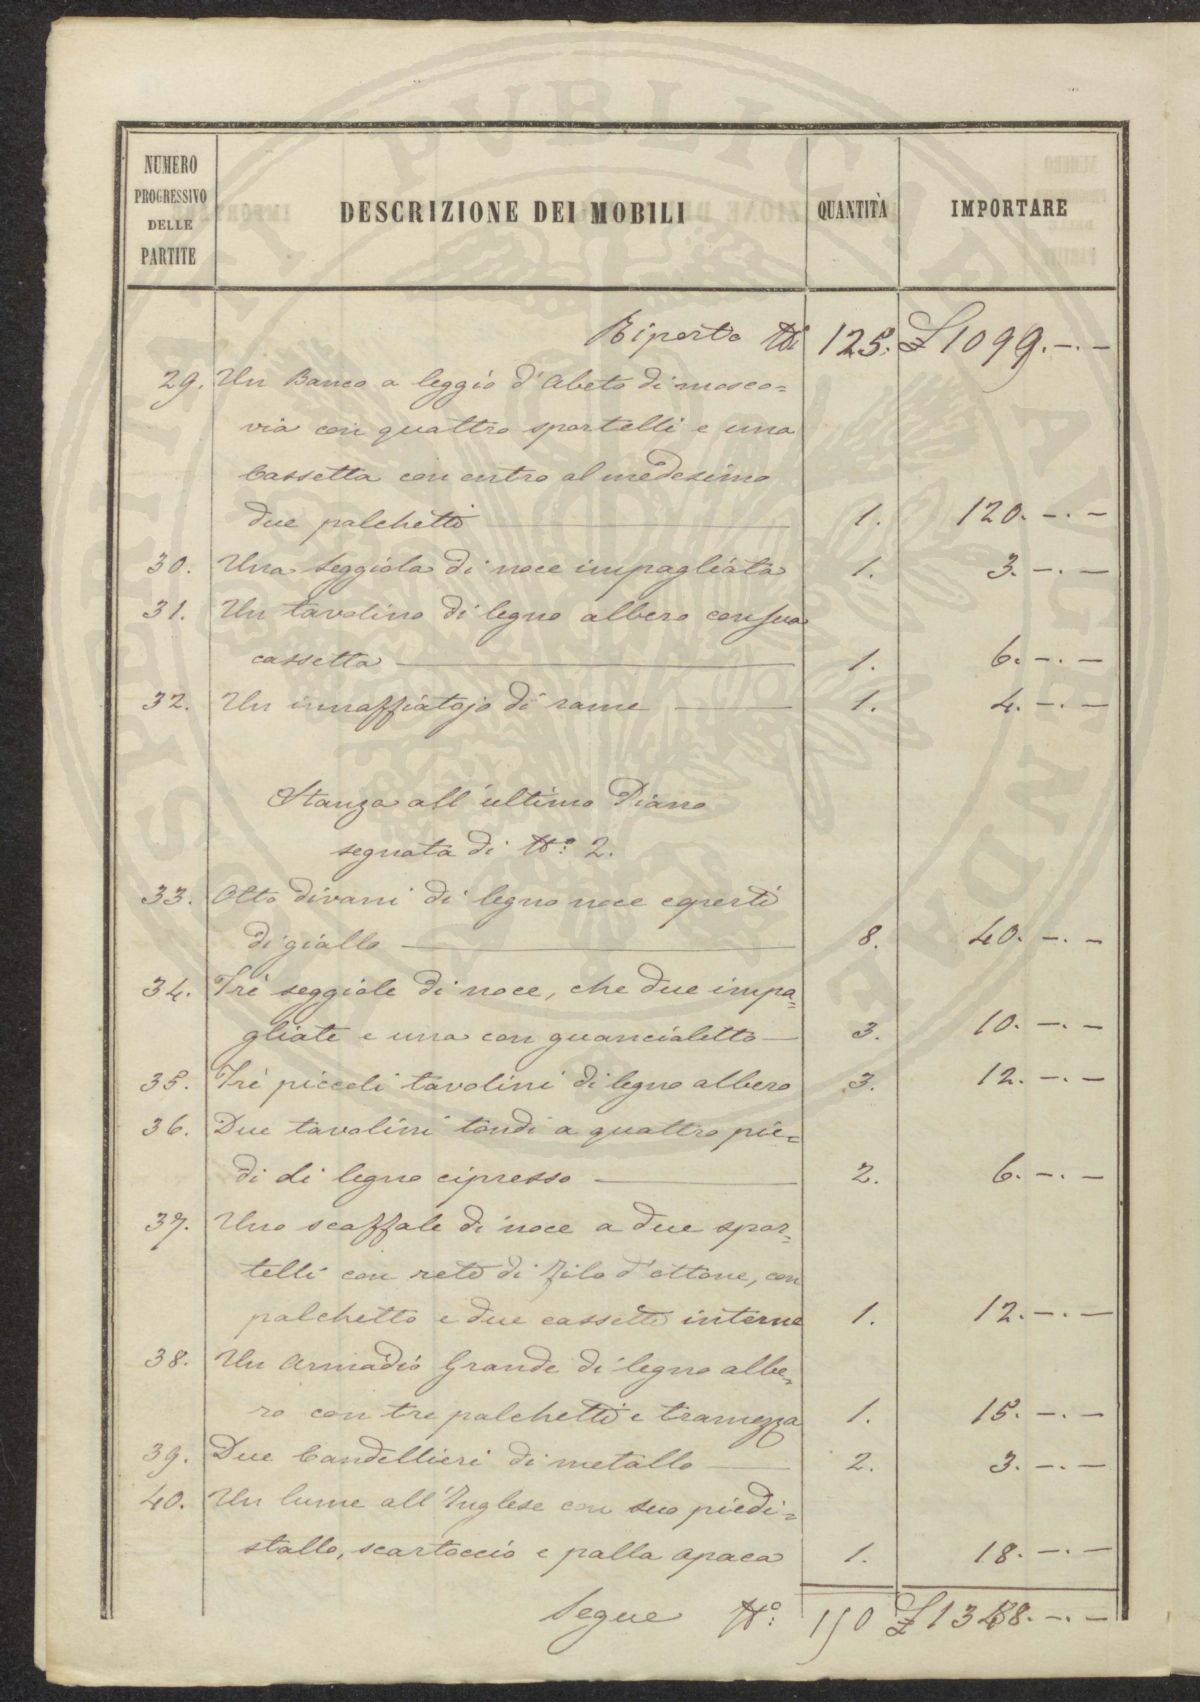 NUMERO PROGRESSIVO DELLE PARTITE DESCRIZIONE DEI MOBILI QUANTITÀ IMPORTARE
Riporto N° 125. £ 1099.-.-
29. Un Banco a leggio d'Abeto di mosco=
via con quattro sportelli e una
Cassetta con entro al medesimo
due palchetti 1. 120.-.-
30. Una Seggiola di noce impagliata 1. 3.-.-
31. Un tavolino di legno albero con sua
cassetta 1. 6.-.-
32. Un innaffiatojo di rame 1. 4.-.-
Stanza all'ultimo Piano
segnata di N°: 2.
33. Otto divani di legno noce coperti
di giallo 8. 40.-.-
34. Tre seggiole di noce, che due impa=
gliate e una con guancialetto 3. 10.-.-
35. Tre piccoli tavolini di legno albero 3. 12.-.-
36. Due tavolini tondi a quattro pie=
di di legno cipresso 2. 6.-.-
37. Uno scaffale di noce a due spor=
telli con rete di filo d'ottone, con
palchetto e due cassette interne 1. 12.-.-
38. Un Armadio Grande di legno albe=
ro con tre palchetti e tramezza 1. 15.-.-
39. Due Candellieri di metallo 2. 3.-.-
40. Un lume all'Inglese con suo piedi=
stallo, scartoccio e palla opaca 1. 18.-.-
Segue N°: 150 £ 1348.-.-